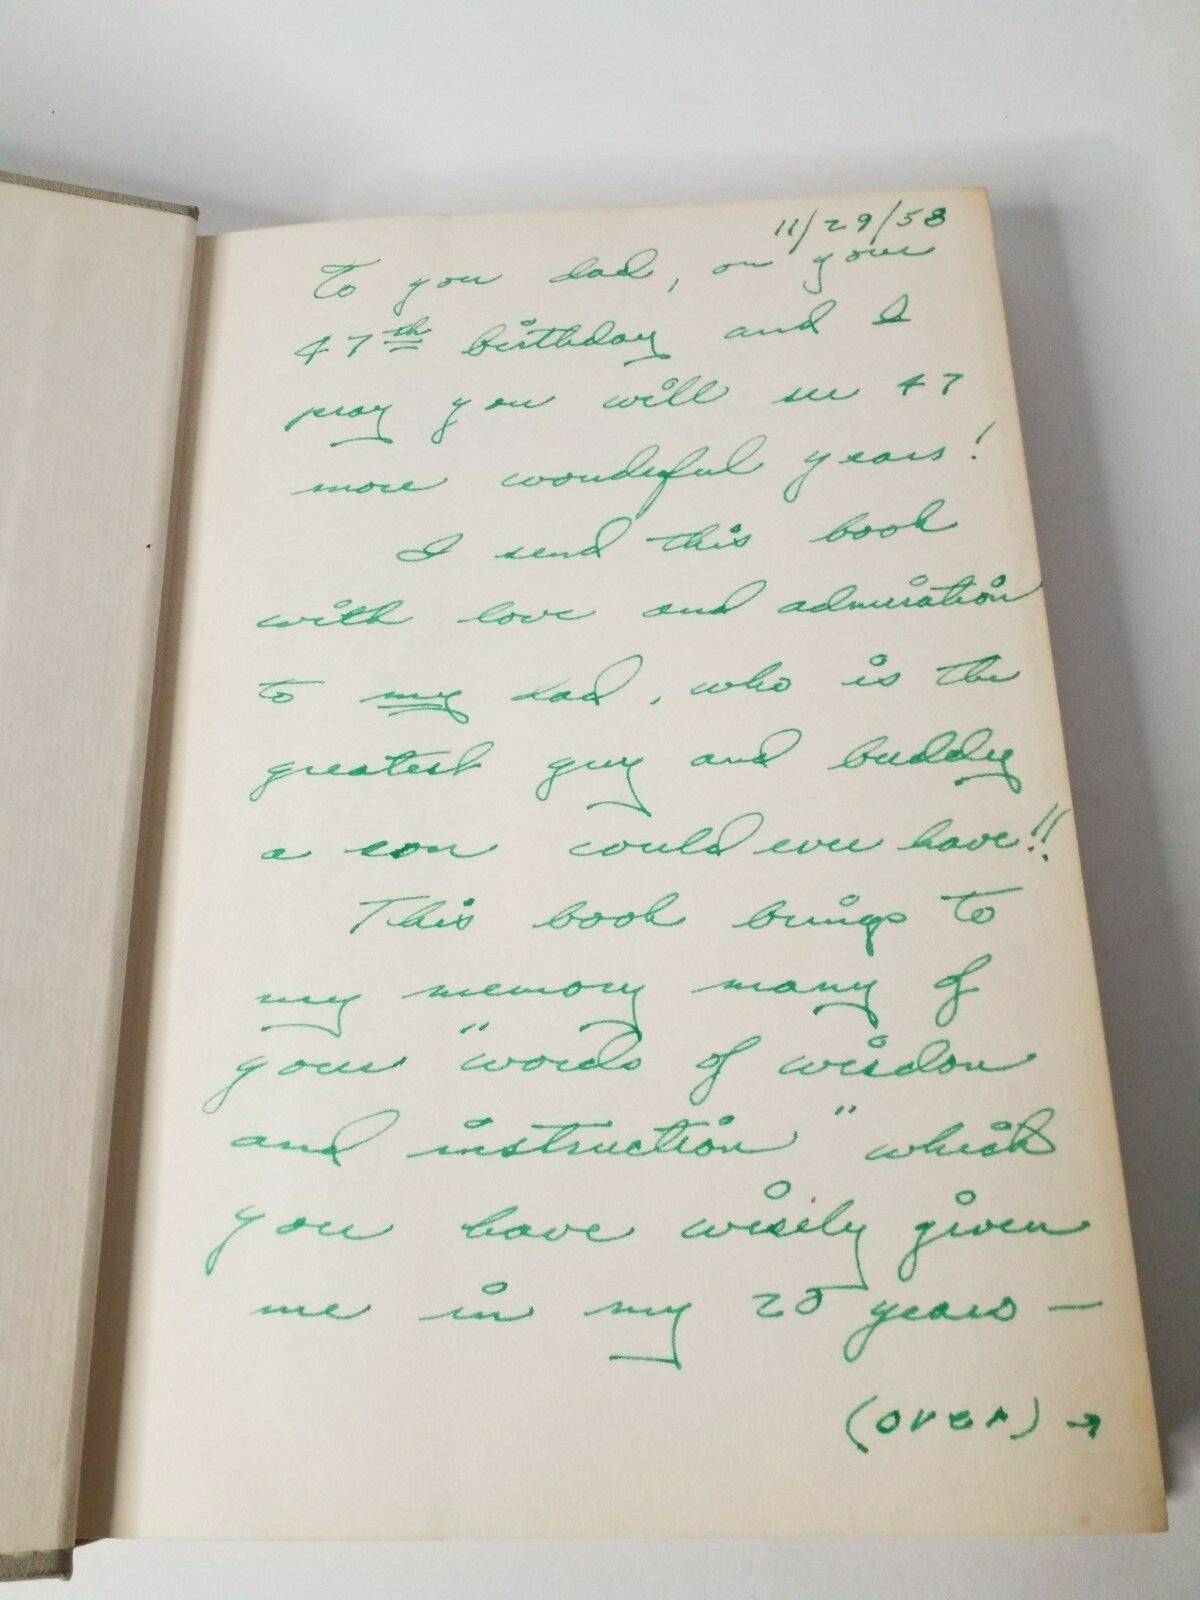 11/29/58
To you dad, on your
47th birthday and I
pray you will see 47
more wonderful years!
I send this book
with love and admiration
to my dad, who is the
greatest guy and buddy
a son could ever have!!
This book brings to
my memory many of
your "words of wisdom
and instruction" which
you have wisely given
me in my 20 years —
(OVER) →